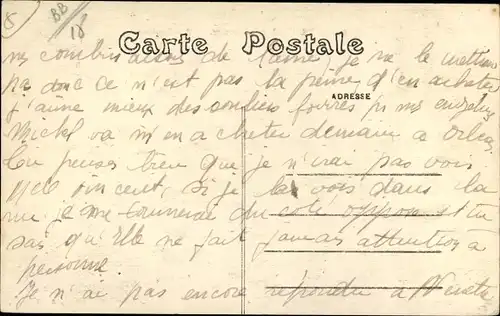 BB
18
Carte Postale
mes combinaisons de laine je ne le mettrai
pas donc ce n'est pas la peine d'en acheter
ADRESSE
j'aime mieux des souliers fourrés pr mes engelures
Michel va m'en acheter demain a
Tu penses bien que je n'irai pas voir
Vincent, si je la vois dans la
rue je me tournerai du coté opposé tu
sais qu'Elle ne fait jamais attention à
personne.
Je n'ai pas encore répondu à